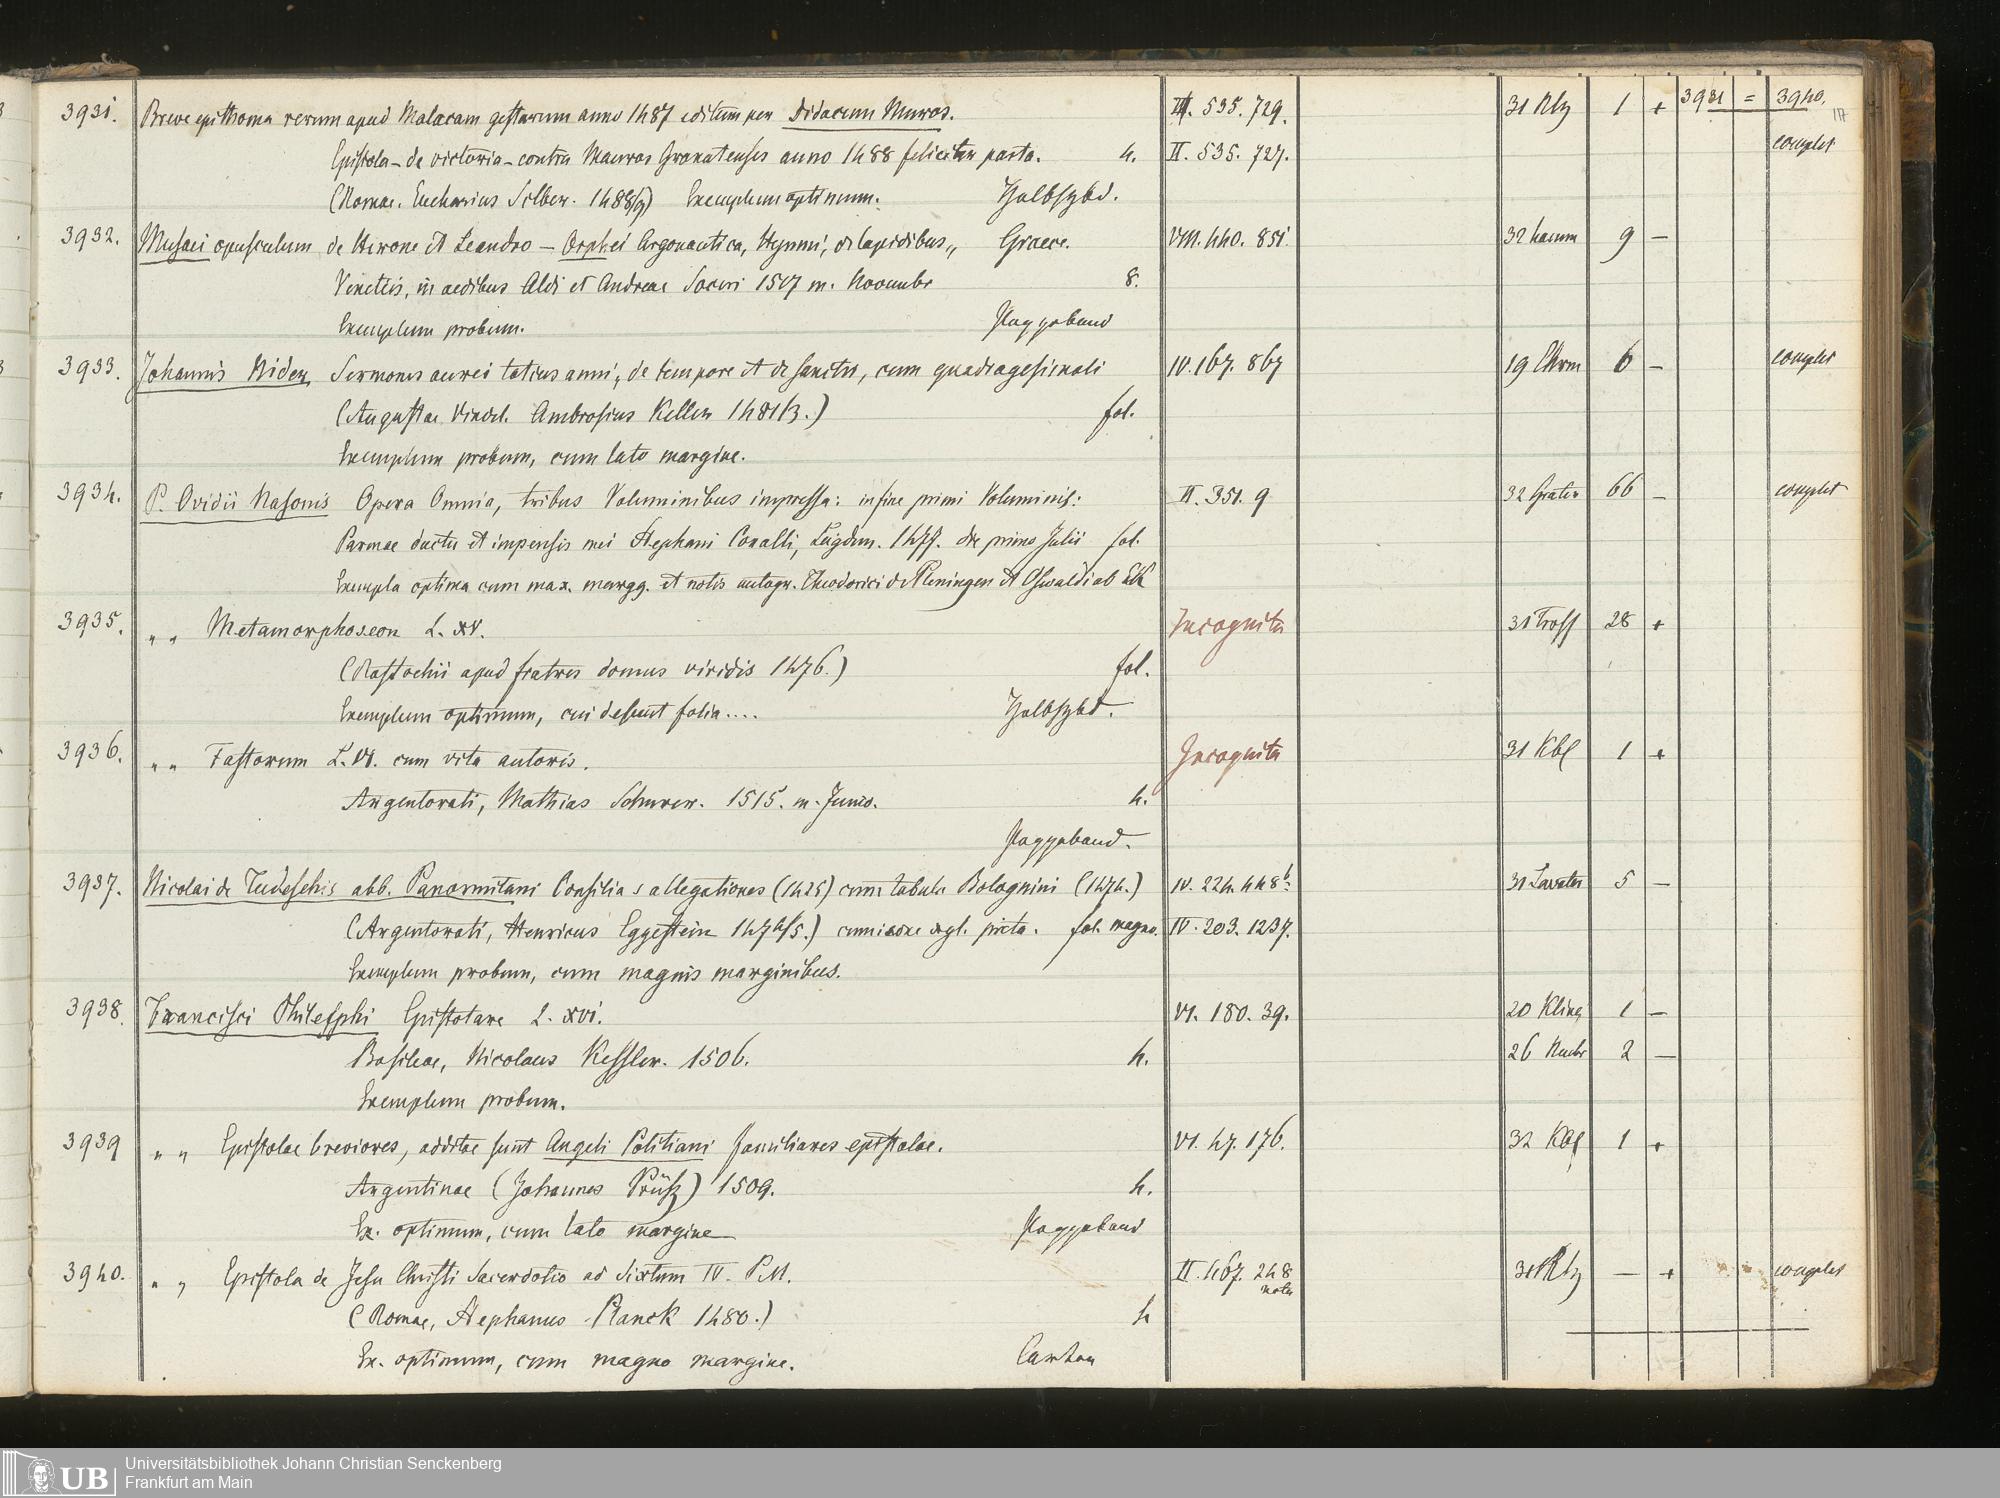 3931. Breve epithoma rerum apud Malacam gestarum anno 1487 editum per Didacum Muros. III. 535. 729. 31 Rtz 1 + 3931 = 3940.
Epistola de victoria contra Mauros Granatenses anno 1488 feliciter parta. 4. II. 535. 727. complet
(Romae. Eucharius Silber. 1488/9) Exemplum optimum. Halbfzbd.
3932. Musaei opusculum de Herone et Leandro — Orphei Argonautica, Hymni, de lapidibus,, Graece. VIII. 440. 851. 32 9 —
Venetiis, in aedibus Aldi et Andreae Soceri 1517 m. Novembr 8.
Exemplum probum. Pappband
3933. Johannis Nider Sermones aurei totius anni, de tempore et de sanctis, cum quadragesimali IV. 167. 867 19 6 — complet
(Augustae Vindel. Ambrosius Keller 1481/3.) fol.
Exemplum probum, cum lato margine.
3934. P. Ovidii Nasonis Opera Omnia, tribus Voluminibus impressa: in fine primi Voluminis: II. 351. 9 32 66 — complet
Parmae ductu et impensis mei Stephani Coralli, Lugdun. 1477. die primo Julii fol.
Exempla optima cum max. margg. et notis autogr. Theodorici de Pleningen et Oswaldi ab Eck
3935. „ „ Metamorphoseon L. XV. Incognita 31 28 +
(Rostochii apud fratres domus viridis 1476.) fol.
Exemplum optimum, cui desunt folia.... Halbfzbd.
3936. „ „ Fastorum L. VI. cum vita autoris. Incognita 31 Kbl 1 +
Argentorati, Mathias Schurer. 1515. m. Junio. 4.
Pappband.
3937. Nicolai de Tudeschis abb. Panormitani Consilia s allegationes (1425) cum tabula Bolognini (1474.) IV. 224. 448b 31 5 —
(Argentorati, Henricus Eggestein 1474/5.) cum icone xyl. picta. fol. magno. IV. 203. 1237.
Exemplum probum, cum magnis marginibus.
3938. Francisci Philelphi Epistolare L. XVI. VI. 180. 39. 20 Kling 1 —
Basileae, Nicolaus Kessler. 1506. 4. 26 2 —
Exemplum probum.
3939 „ „ Epistolae breviores, additae sunt Angeli Politiani familiares epistolae. VI. 47. 176. 32 Kbl 1 +
Argentinae (Johannes Prüsz) 1509. 4.
Ex. optimum, cum lato margine Pappband
3940. „ „ Epistola de Jesu Christi Sacerdotio ad Sixtum IV. P.M. II. 467. 248 31 Rtz — + complet
nota
(Romae, Stephanus Planck 1480.) 4
Ex. optimum, cum magno margine. Carton
UB Universitätsbibliothek Johann Christian Senckenberg
Frankfurt am Main